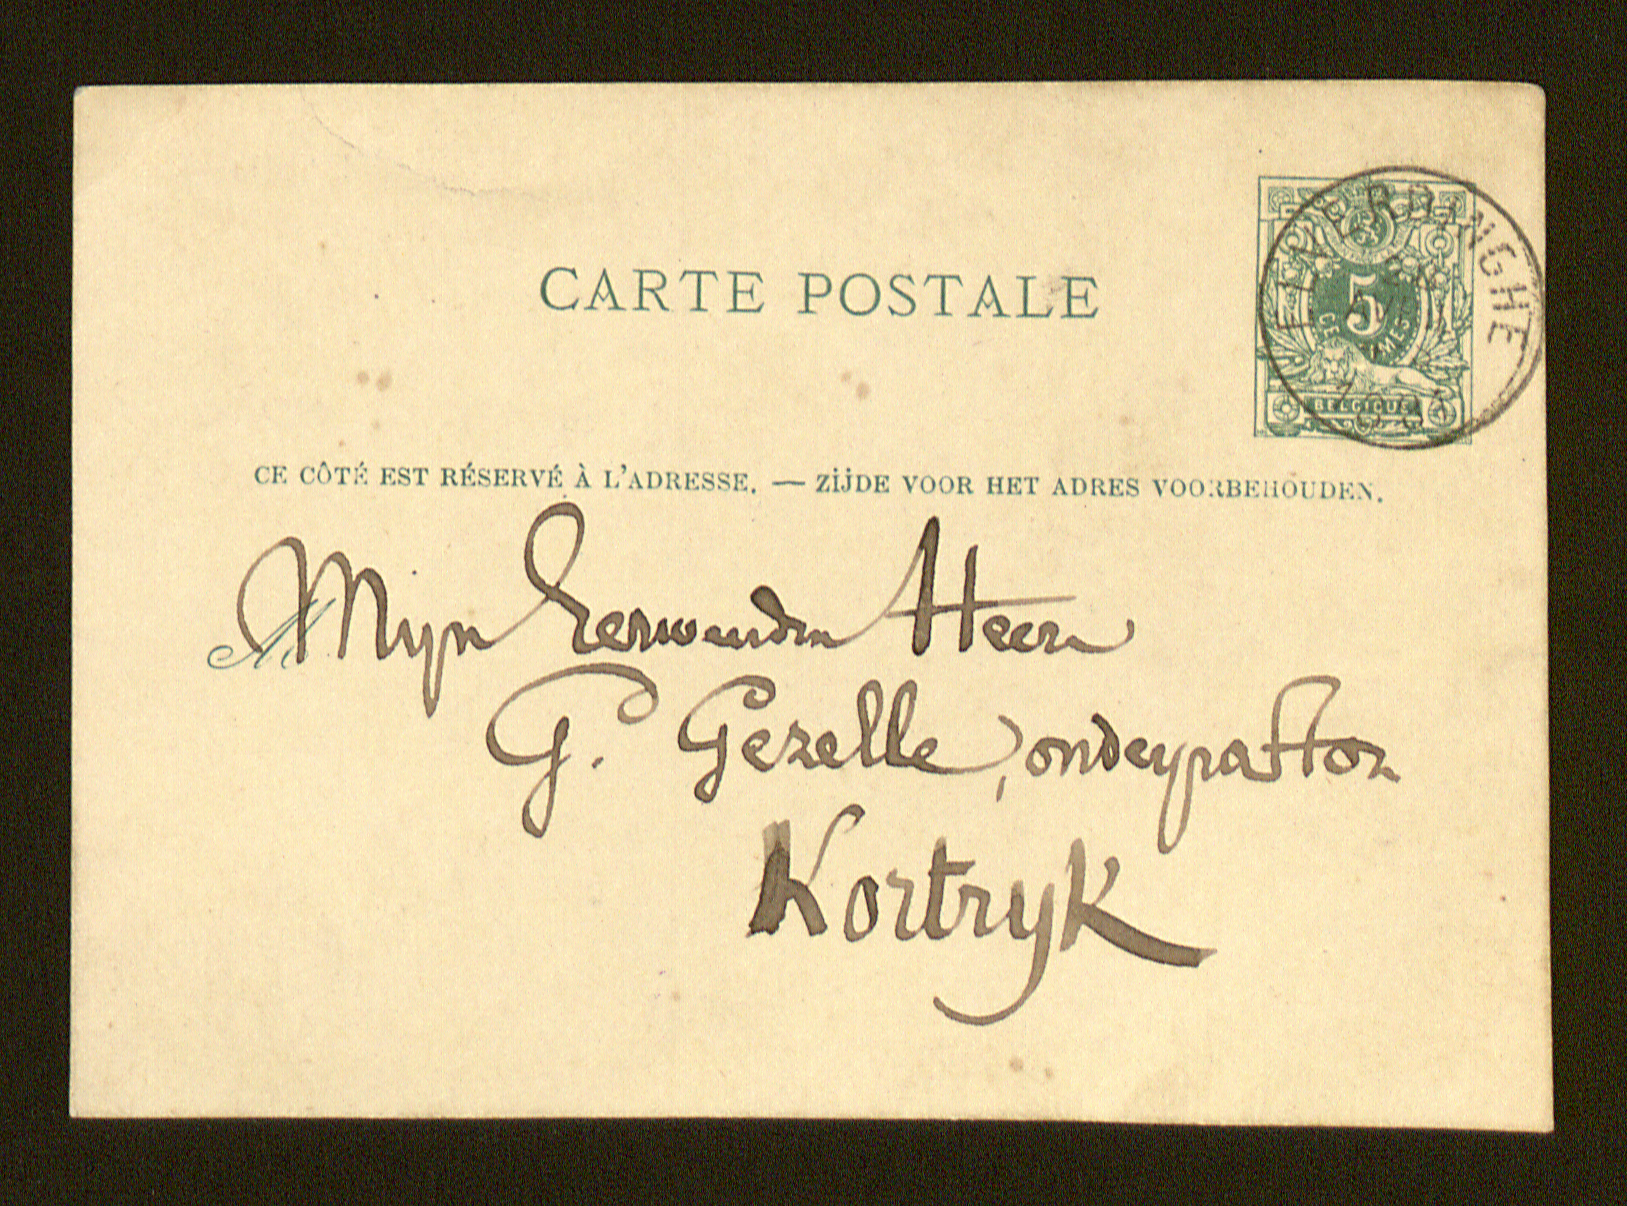 CARTE POSTALE
ELVERDINGHE
5
CENTIMES
BELGIQUE
CE CÔTÉ EST RÉSERVÉ À L'ADRESSE. — ZIJDE VOOR HET ADRES VOORBEHOUDEN.
M
Mijn Eerweerden Heere
G. Gezelle, onderpastor
Kortryk